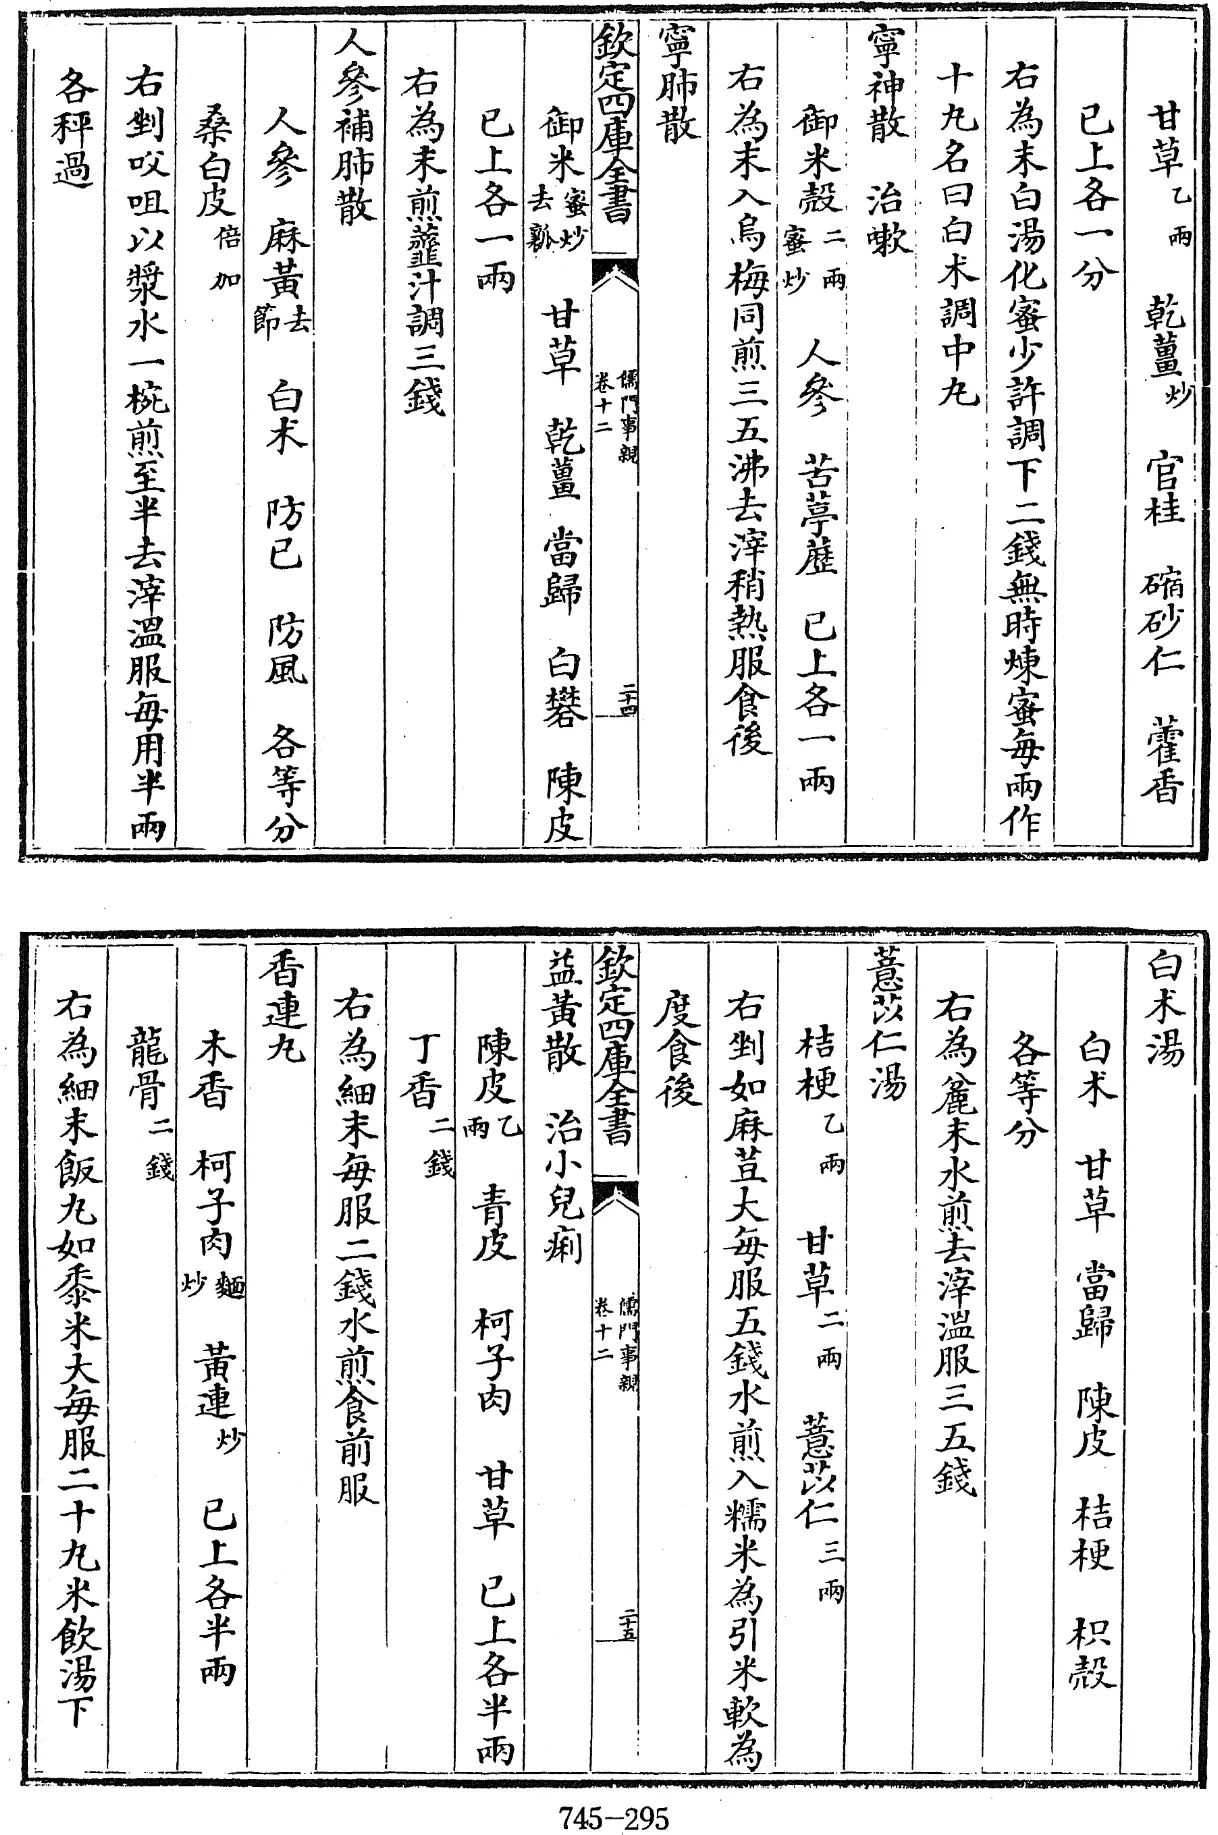 甘草乙兩　乾薑炒　官桂　縮砂仁　藿香
已上各一分
右為末白湯化蜜少許調下二錢無時煉蜜每兩作
十丸名曰白朮調中丸
寧神散　治嗽
御米殼二兩蜜炒　人參　苦葶藶　已上各一兩
右為末入烏梅同煎三五沸去滓稍熱服食後
寧肺散
欽定四庫全書　儒門事親卷十二　二十四
御米蜜炒去瓤　甘草　乾薑　當歸　白礬　陳皮
已上各一兩
右為末煎虀汁調三錢
人參補肺散
人參　麻黃去節　白朮　防已　防風　各等分
桑白皮倍加
右剉㕮咀以漿水一椀煎至半去滓溫服每用半兩
各秤過
白朮湯
白朮　甘草　當歸　陳皮　桔梗　枳殼
各等分
右為麄末水煎去滓溫服三五錢
薏苡仁湯
桔梗乙兩　甘草二兩　薏苡仁三兩
右剉如麻荳大每服五錢水煎入糯米為引米軟為
度食後
欽定四庫全書　儒門事親卷十二　二十五
益黃散　治小兒痢
陳皮乙兩　青皮　柯子肉　甘草　已上各半兩
丁香二錢
右為細末每服二錢水煎食前服
香連丸
木香　柯子肉麵炒　黃連炒　已上各半兩
龍骨二錢
右為細末飯丸如黍米大每服二十丸米飲湯下
745-295